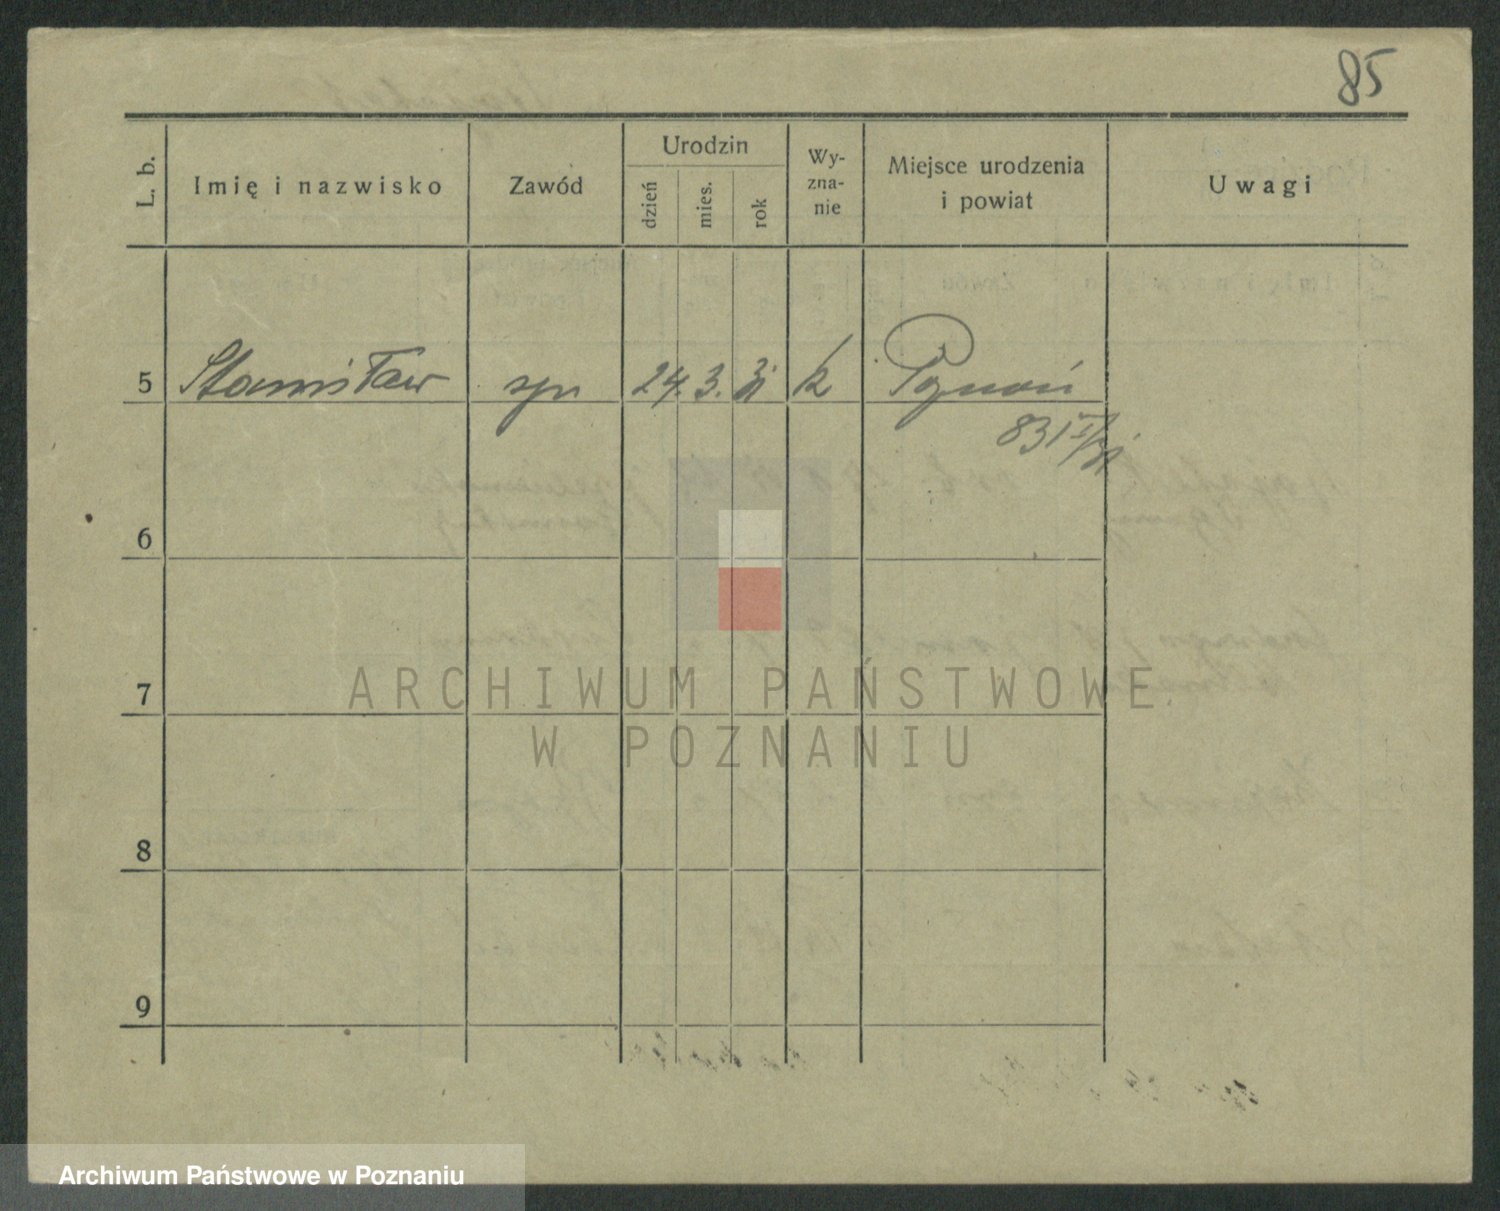 85
L. b.
Imię i nazwisko
Zawód
Urodzin
dzień
mies.
rok
Wy-
zna-
nie
Miejsce urodzenia
i powiat
Uwagi
5 Stanisław syn 24. 3. 31 k Poznań
6
7
8
9
ARCHIWUM PAŃSTWOWE
W POZNANIU
Archiwum Państwowe w Poznaniu